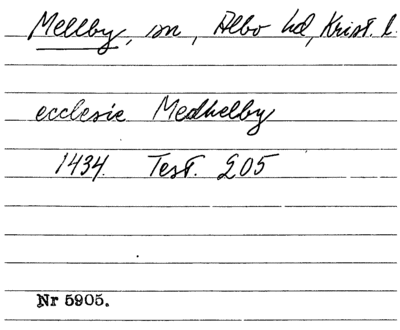 Mellby, sn, Albo hd, Krist. l.
ecclesie Medhelby
1434. Test. 205
Nr 5905.